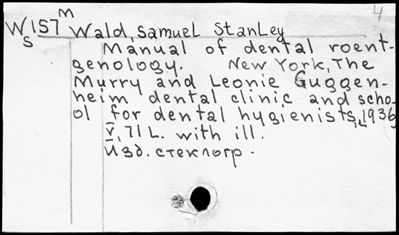 4
M
W157 Wald, Samuel Stanley
S
Manual of dental roent-
genology. New York, The
Murry and Leonie Guggen-
heim dental clinic and scho-
ol for dental hygienists, 1936
V, 71 L. with ill.
Изд. стеклогр.